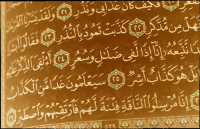 فَكَيْفَ كَانَ عَذَابِى وَنُذُرِ ﴿٢١﴾ وَلَقَدْ يَسَّرْنَا
مِن مُّدَّكِرٍ ﴿٢٢﴾ كَذَّبَتْ ثَمُودُ بِٱلنُّذُرِ ﴿٢٣﴾ فَقَالُوٓا۟ أَبَشَرًا
نَّتَّبِعُهُۥٓ إِنَّآ إِذًا لَّفِى ضَلَٰلٍ وَسُعُرٍ ﴿٢٤﴾ أَءُلْقِىَ ٱلذِّكْرُ
بَلْ هُوَ كَذَّابٌ أَشِرٌ ﴿٢٥﴾ سَيَعْلَمُونَ غَدًا مَّنِ ٱلْكَذَّابُ
إِنَّا مُرْسِلُوا۟ ٱلنَّاقَةِ فِتْنَةً لَّهُمْ فَٱرْتَقِبْهُمْ وَٱصْطَبِرْ ﴿٢٧﴾